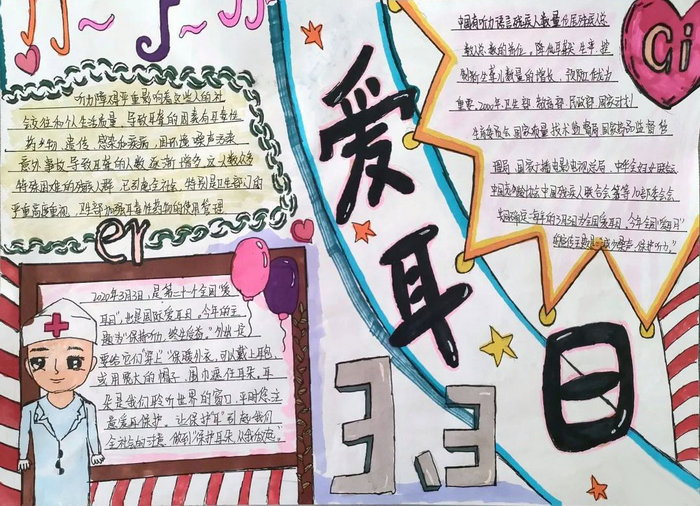 听力障碍严重影响着这些人的社
会交往和个人生活质量，导致耳聋的因素有耳毒性
药物、遗传、感染和疾病，因环境噪声污染
意外事故导致耳聋的人数逐渐增多，这个人数众多
特殊困难的残疾人群，已引起全社会，特别是卫生部门的
严重高度重视，卫生部加强耳毒性药物的使用管理
er
2020年3月3日，是第二十个全国"爱
耳日"，也是国际爱耳日。今年的主
题为"保护听力，终生受益。"外出一定
要给它们"穿上"保暖外衣，可以戴上耳包
或用宽大的帽子、围巾遮住耳朵，耳
朵是我们聆听世界的窗口，平时您注
意爱耳保护。让保护"耳"引起我们
全社会的注意，做到"保护耳朵，从我做起"
爱
耳
日
3.3
中国有听力语言残疾人数量位居残疾总
数的首位，降低耳聋发生率，控
制新生聋儿数量的增长，预防优为
重要。2000年卫生部、教育部、民政部、国家计划
生育委员会、国家质量技术监督局、国家药品监督管
理局、国家广播电影电视总局、中华全国妇女联合会
中国老龄协会、中国残疾人联合会等10部委会
共同确定每年的3月3日为全国爱耳日，今年全国"爱耳日"
ai